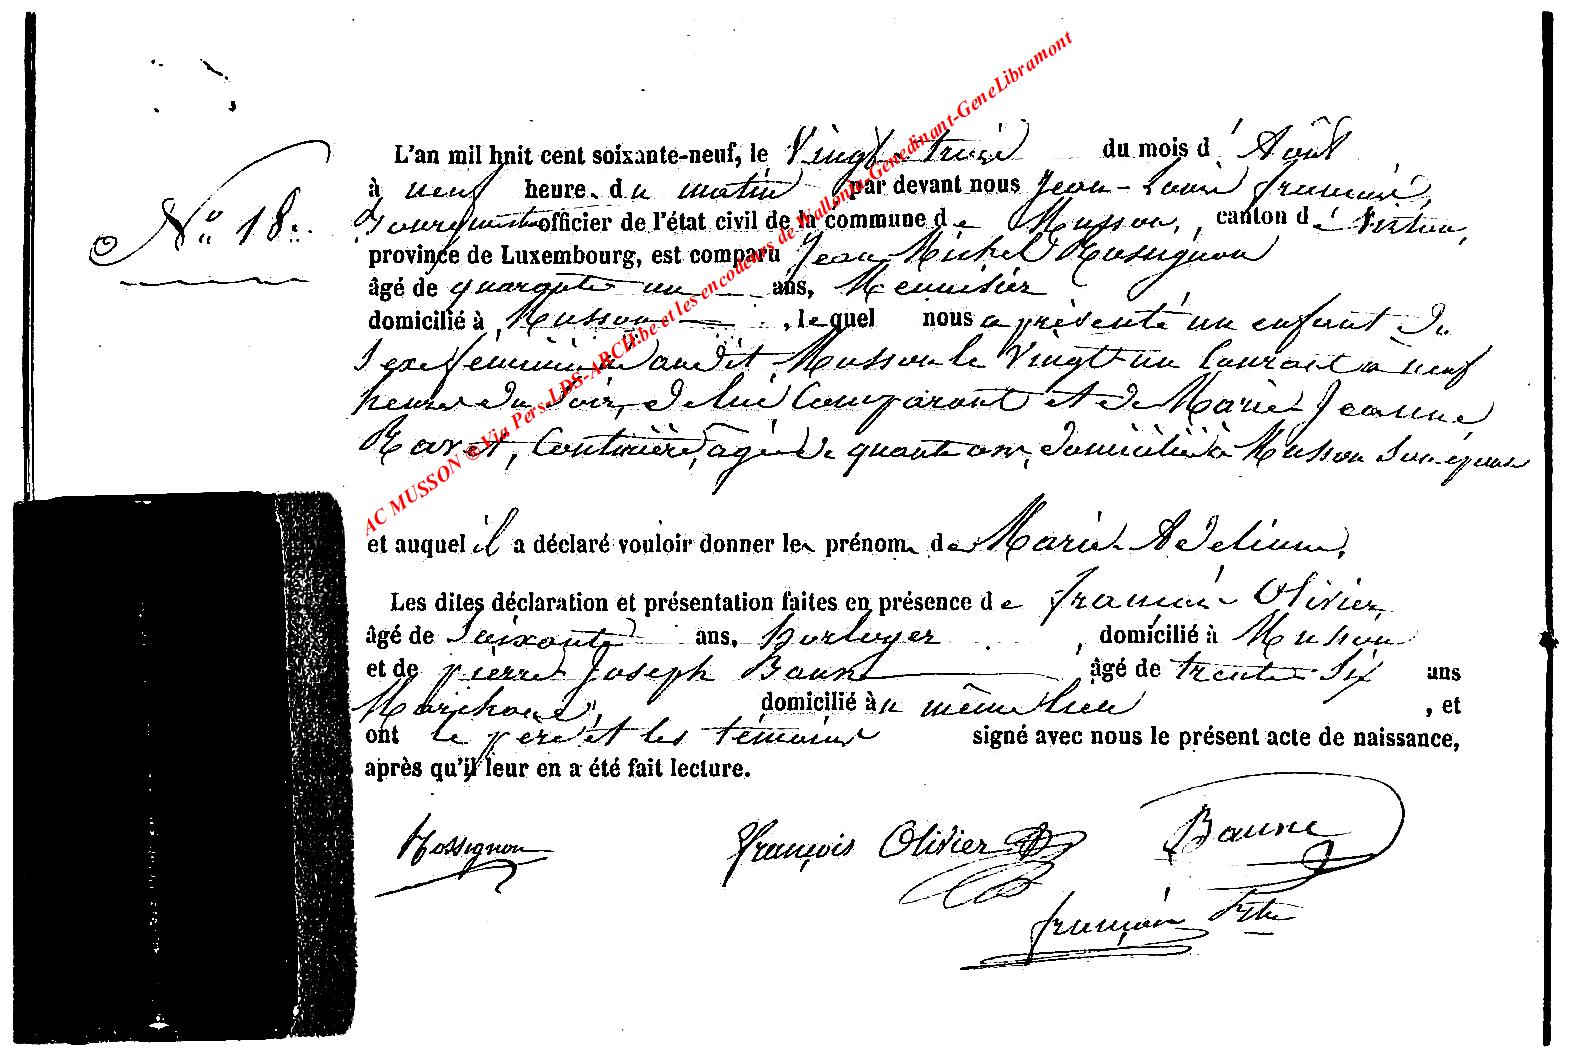 L'an mil huit cent soixante-neuf, le Vingt trois du mois d' Août
à neuf heures du matin par devant nous Jean-Louis François,
N° 18. Bourgmestre officier de l'état civil de la commune de Musson, canton de Virton,
province de Luxembourg, est comparu Jean Michel Rossignon
âgé de quarante un ans, Menuisier
domicilié à Musson, lequel nous a présenté un enfant du
Sexe féminin né audit Musson le Vingt un Courant à neuf
heures du Soir, de lui Comparant et de Marie Jeanne
Couturière, âgée de quarante ans, domiciliée à Musson Son épouse
et auquel il a déclaré vouloir donner les prénoms de Marie Adeline.
Les dites déclaration et présentation faites en présence de François Olivier,
âgé de Soixante ans, horloger, domicilié à Musson
et de pierre Joseph Baune âgé de trente Six ans
domicilié au même lieu, et
ont le père et les témoins signé avec nous le présent acte de naissance,
après qu'il leur en a été fait lecture.
Rossignon François Olivier Baune
françois
AC MUSSON © Via Pers-LDS-ARCH.be et les encodeurs de Wallonia-Genedinant-GeneLibramont